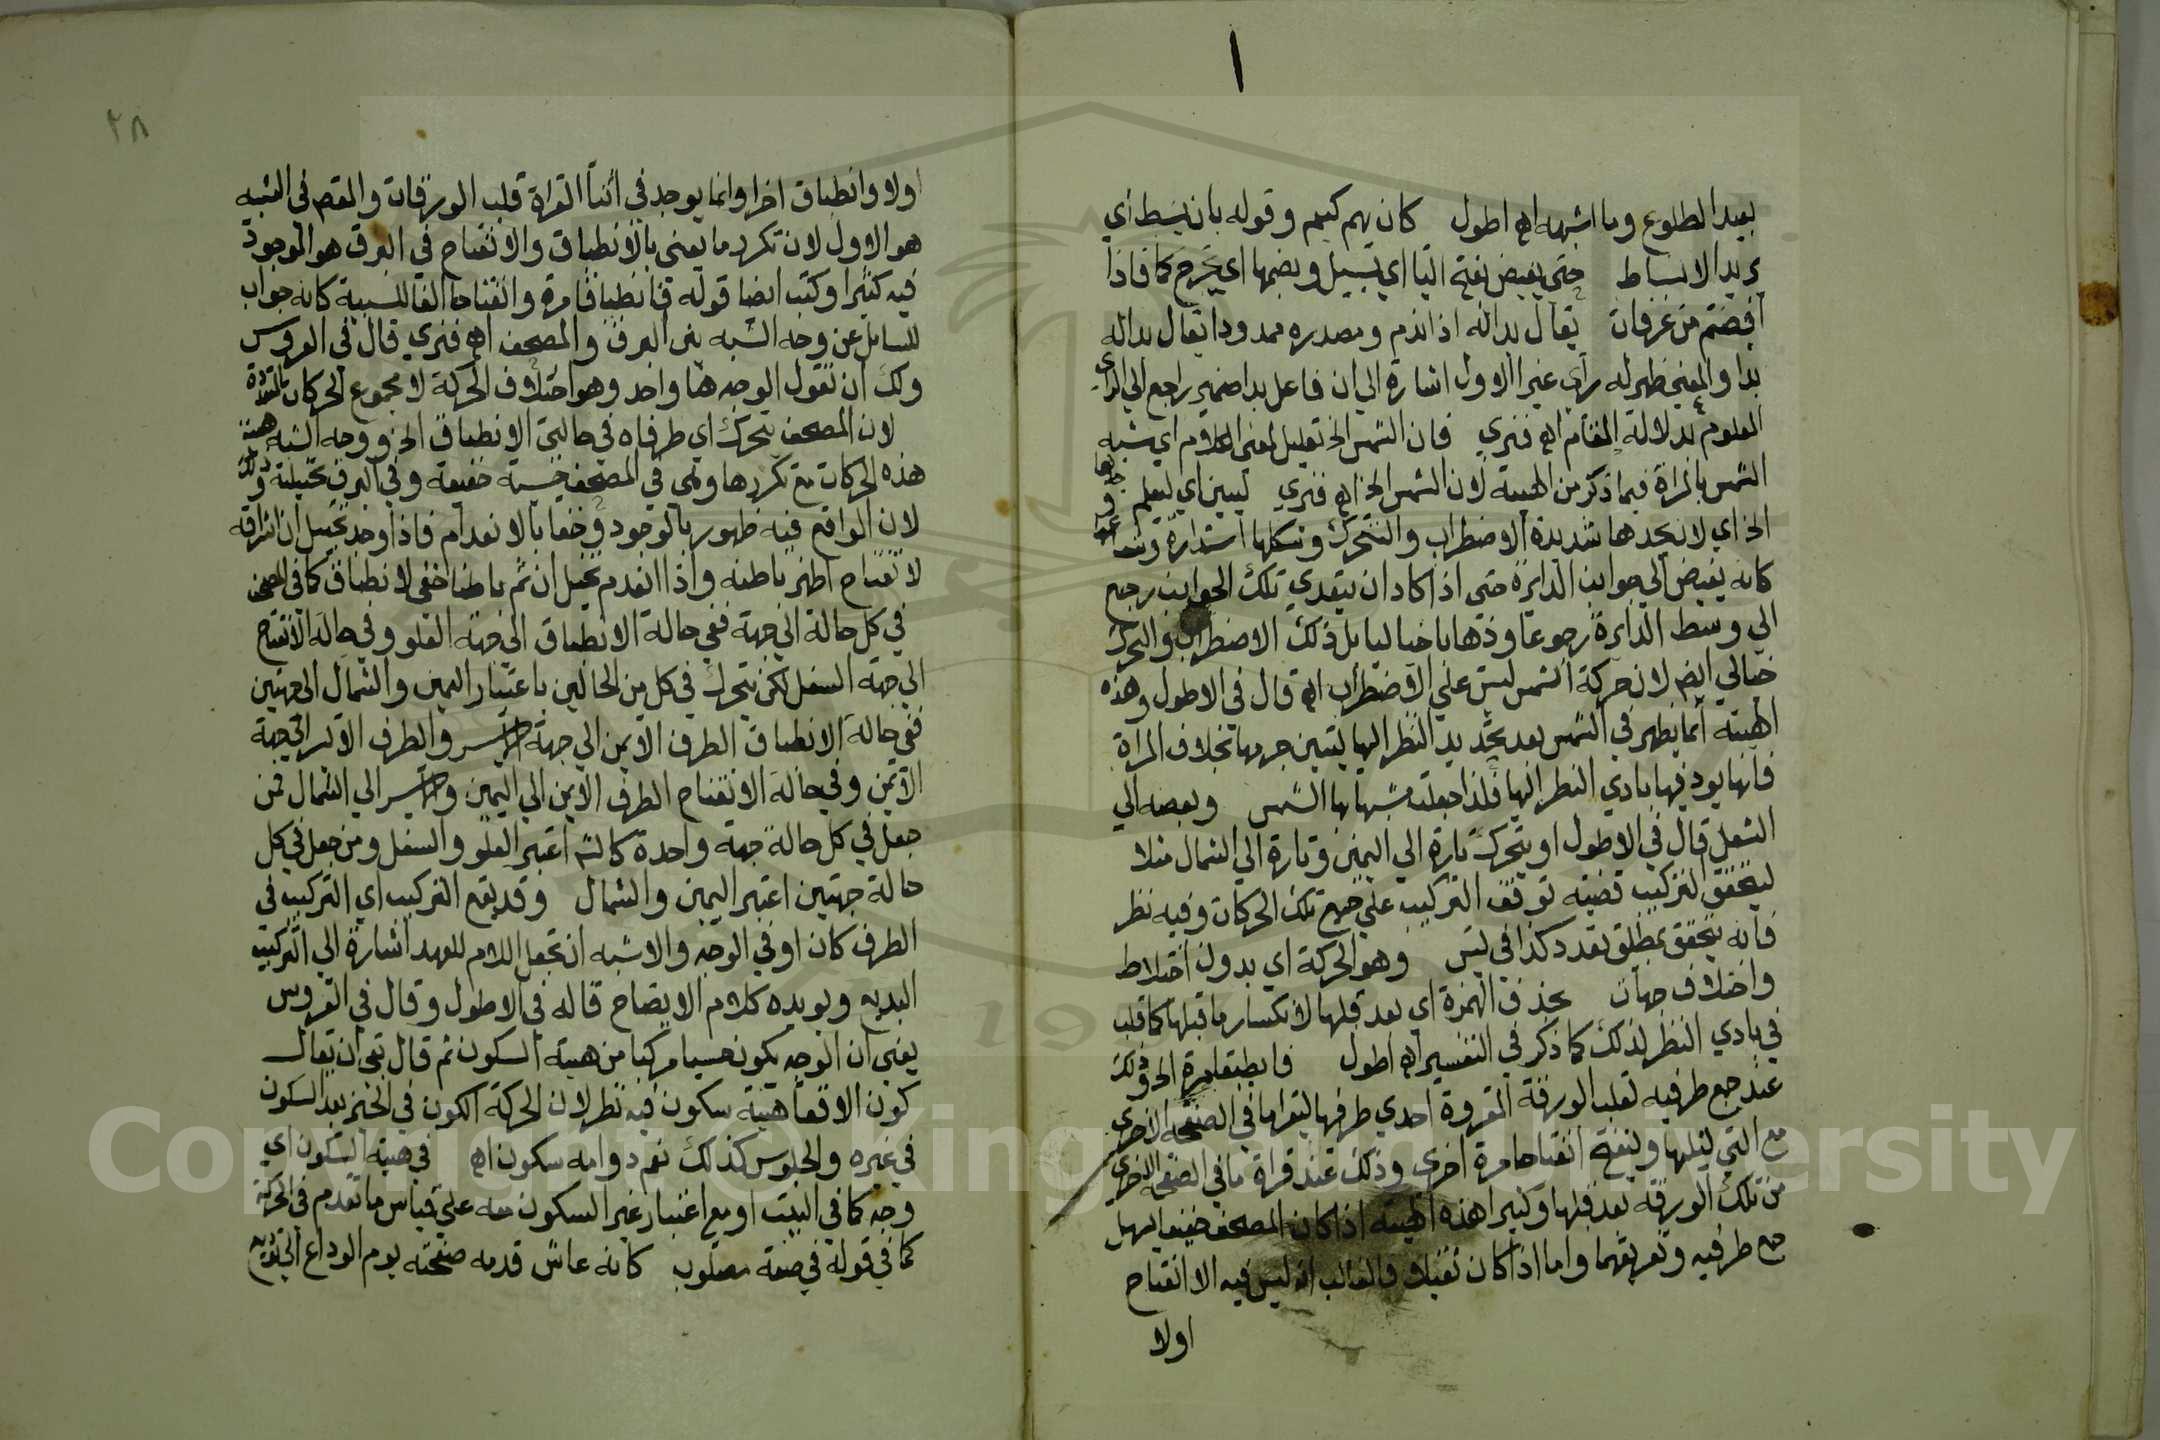 بعيد الطلوع وما اشبهه اه اطول كان يهم كيهم وقوله بان ينبسط اي
يريد الانبساط حتى يفيض بفتح اليا اي يسيل وبضمها اي يخرج كما فاذا
افضتم من عرفات يقال بداله اذا ندم ومصدره ممدودا يقال بداله
بدا والمعنى ظهر له رأي غير الاول اشارة الى ان فاعل بدا ضمير راجع الى الراي
المعلوم بدلالة المقام اه فنري فان الشمس الخ تعليل لمعنى الكلام اي شبه
الشمس بالمراة فيما ذكر من الهيئة لان الشمس الخ اه فنري ليتبين اي ليعلم
الخ اي لا نجدها شديدة الاضطراب والتحرك وشكلها استدارة
كانه يفيض الى جوانب الدايرة حتى اذا كاد ان يتعدي تلك الجوانب رجع
الى وسط الدايرة رجوعا وذهابا خياليا بل ذلك الاضطراب والتحرك
خيالي ايضا لان حركة الشمس ليست على الاضطراب اه قال في الاطول وهذه
الهيئة انما يظهر في الشمس بعد تحديد النظر اليها ليتبين جرمها بخلاف المراة
فانها يوديها بادي النظر اليها فلذا جعلت مشبها بها الشمس وبعضه الى
السفل قال في الاطول او يتحرك تارة الى اليمين وتارة الى الشمال مثلا
ليتحقق التركيب قضيته توقف التركيب على جميع تلك الحركات وفيه نظر
فانه يتحقق بمطلق تعدد كذا في يس وهو الحركة اي بدون اختلاط
واختلاف جهات بحذف الهمزة اي بعد قلبها لانكسار ما قبلها كما قلب
في بادي النظر لذلك كما ذكر في التفسير اه اطول فانطباقا مرة الخ وذلك
عند جمع طرفيه لقلب الورقة المقروة احدي طرفيها ليقرا ما في الصفحة الاخرى
مع التي تليها وينفتح انفتاحا مرة اخرى وذلك عند قراة ما في الصفحة الاخرى
من تلك الورقة بعد قلبها وكثيرا هذه الهيئة اذا كان المصحف خفيفا يسهل
جمع طرفيه وتفريقهما واما اذا كان ثقيلا فالغالب انه ليس فيه الا انفتاح
اولا
٢٨
اولا وانطباق اخرا وانما يوجد في اثنا القراة قلب الورقات والمقصم في الشبه
هو الاول لان تكرر ما يعني بالانطباق والانفتاح في البرق هو الموجود
فيه كثيرا وكتب ايضا قوله فانطباقا مرة وانفتاحا الفا للسببية كانه جواب
للسايل عن وجه الشبه بين البرق والمصحف اه فنري قال في العروس
ولك ان تقول الوجه هنا واحد وهو اختلاف الحركة لا مجموع الحركات المتعددة
لان المصحف يتحرك اي طرفاه في حالتي الانطباق الخ ووجه الشبه هيئة
هذه الحركات مع تكررها وهي في المصحف حسية حقيقة وفي البرق تخيلية وذلك
لان الواقع فيه ظهور بالوجود وخفا بالانعدام فاذا وجد تخيل ان اشراقه
لانفتاح اظهر باطنه واذا انعدم تخيل ان ثم باطنا خفى لانطباق كما في المصحف
في كل حالة الى جهة ففي حالة الانطباق الى جهة العلو وفي حالة الانفتاح
الى جهة السفل لكن يتحرك في كل من الحالين باعتبار اليمين والشمال الى جهتين
ففي حالة الانطباق الطرف الايمن الى جهة الايسر والطرف الايسر الى جهة
الايمن وفي حالة الانفتاح الطرف الايمن الى اليمين والايسر الى الشمال فمن
جعل في كل حالة جهة واحدة كالشم اعتبر العلو والسفل ومن جعل في كل
حالة جهتين اعتبر اليمين والشمال وقد يقع التركيب اي التركيب في
الطرف كان او في الوجه والاشبه ان تجعل اللام للعهد اشارة الى التركيب
البديع ويويده كلام الايضاح قاله في الاطول وقال في العروس
يعني ان الوجه يكون حسيا مركبا من هيئة السكون ثم قال بقي ان يقال
كون الاقعا هيئة سكون فيه نظر لان الحركة الكون في الحيز بعد السكون
في غيره والجلوس كذلك نعم دوامه سكون اه في هيئة السكون اي
وجه كما في البيت او مع اعتبار غير السكون معه على قياس ما تقدم في الحركة
كما في قوله في صفة مصلوب كانه عاشق قد مد صفحته يوم الوداع الى توديع
Copyright © King Saud University